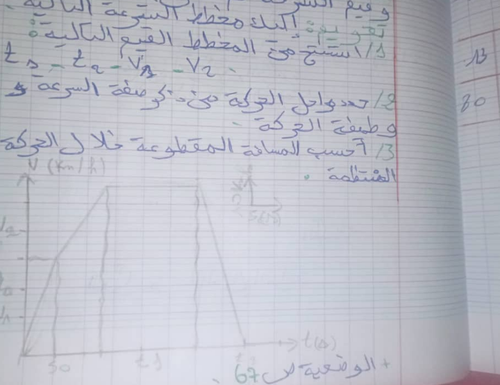 وقيم السرعة
تقويم: إليك مخطط السرعة التالية
1/ استنتج من المخطط القيم التالية:
t1 - t2 - V1 - V2
2/ حدد مراحل الحركة من السرعة و
طبيعة الحركة
3/ احسب المسافة المقطوعة خلال الحركة
المنتظمة
V (Km/h)
50
t1
t(s)
+ الوضعية ص 67